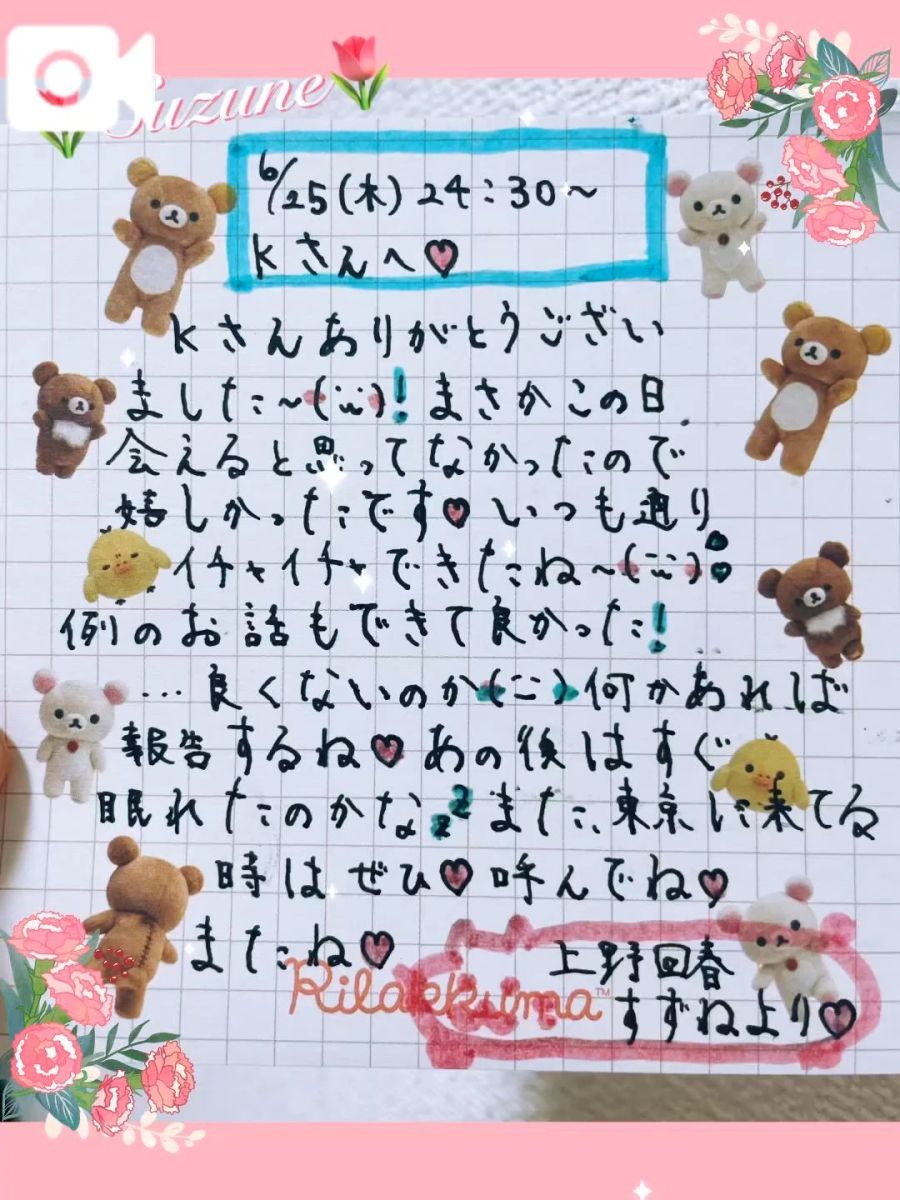 Suzune
6/25(木)24:30〜
Kさんへ♡
Kさんありがとうござい
ました〜(¨)!まさかこの日
会えると思ってなかったので
嬉しかったです♡いつも通り
イチャイチャできたね〜(¨)!
例のお話もできて良かった!
…良くないのか(¨)何かあれば
報告するね♡あの後はすぐ
眠れたのかなzzまた、東京に来てる
時はぜひ♡呼んでね♡
またね♡
Rilakkuma™
上野回春
すずねより♡